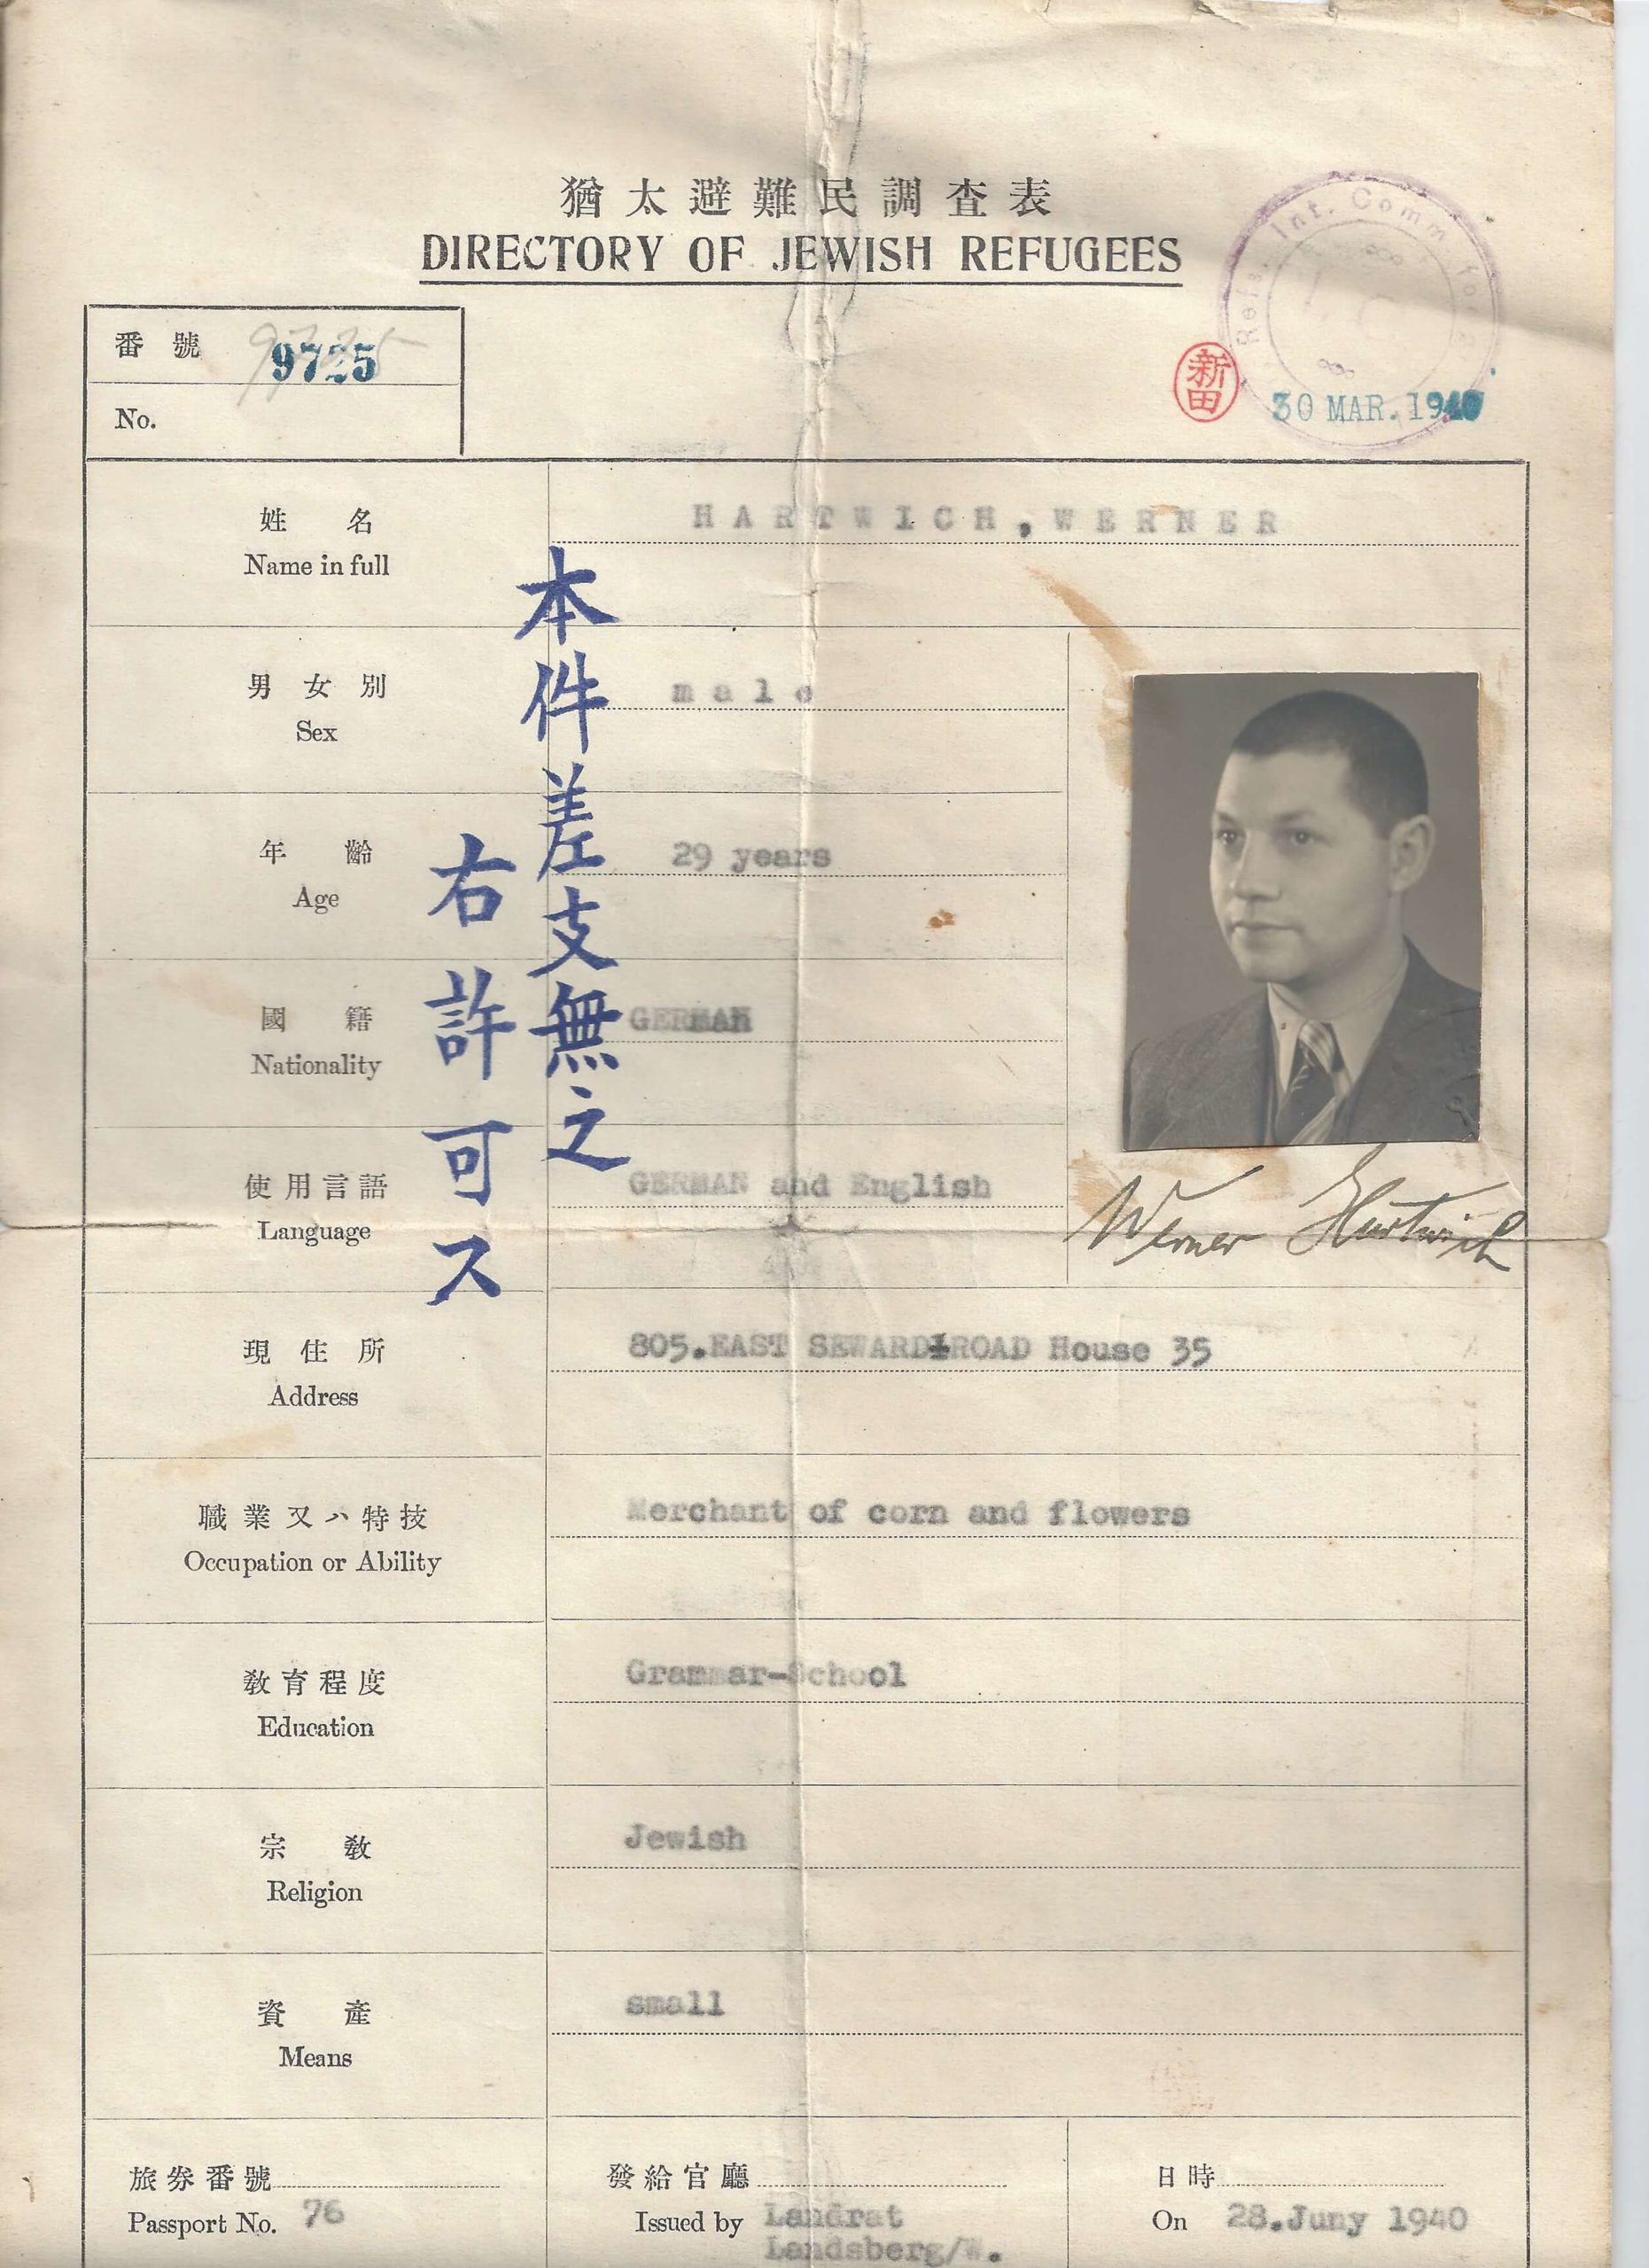 猶太避難民調査表
DIRECTORY OF JEWISH REFUGEES
Int. Comm. for
番號 9725
No.
新田
30 MAR. 1940
姓名 HARTWICH, WERNER
Name in full
男女別 male
Sex
年齡 29 years
Age
國籍 GERMAN
Nationality
使用言語 GERMAN and English
Language
本件差支無之
右許可ス
Werner Hartwich
現住所 805.EAST SEWARD ROAD House 35
Address
職業又ハ特技 Merchant of corn and flowers
Occupation or Ability
教育程度 Grammar-School
Education
宗教 Jewish
Religion
資產 small
Means
旅券番號
Passport No. 76
發給官廳
Issued by Landrat
Landsberg/W.
日時
On 28.Juny 1940